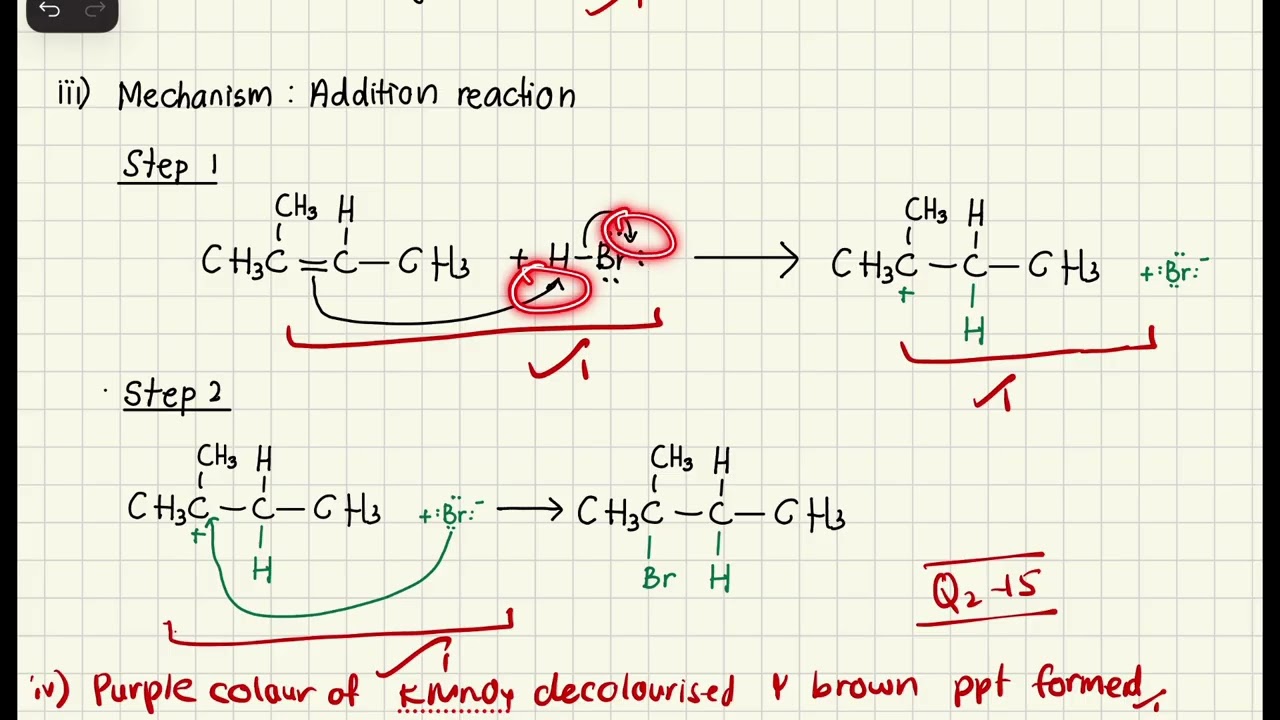 iii) Mechanism : Addition reaction
Step 1
CH₃ H
CH₃C = C – CH₃ + H–Br: ⟶ CH₃C – C – CH₃ + :Br:⁻
CH₃ H
+
H
✓1
✓1
Step 2
CH₃ H
CH₃C – C – CH₃ + :Br:⁻ ⟶ CH₃C – C – CH₃
CH₃ H
+
H
Br H
Q2 – 15
✓1
iv) Purple colour of KMnO₄ decolourised & brown ppt formed ✓1